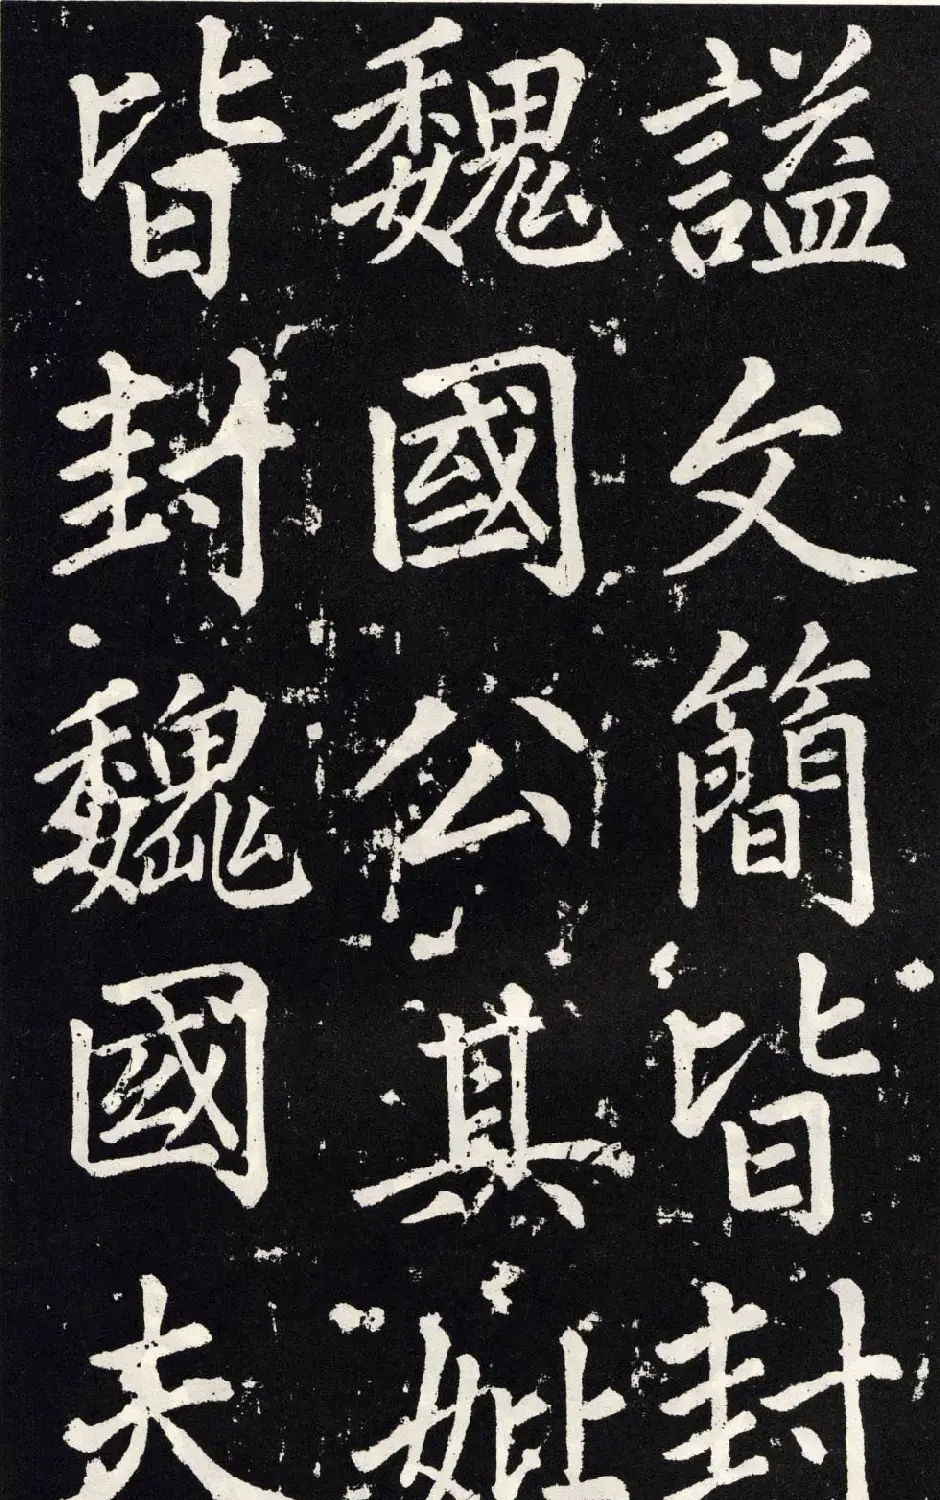 謚文簡皆封
魏國公其妣
皆封魏國夫